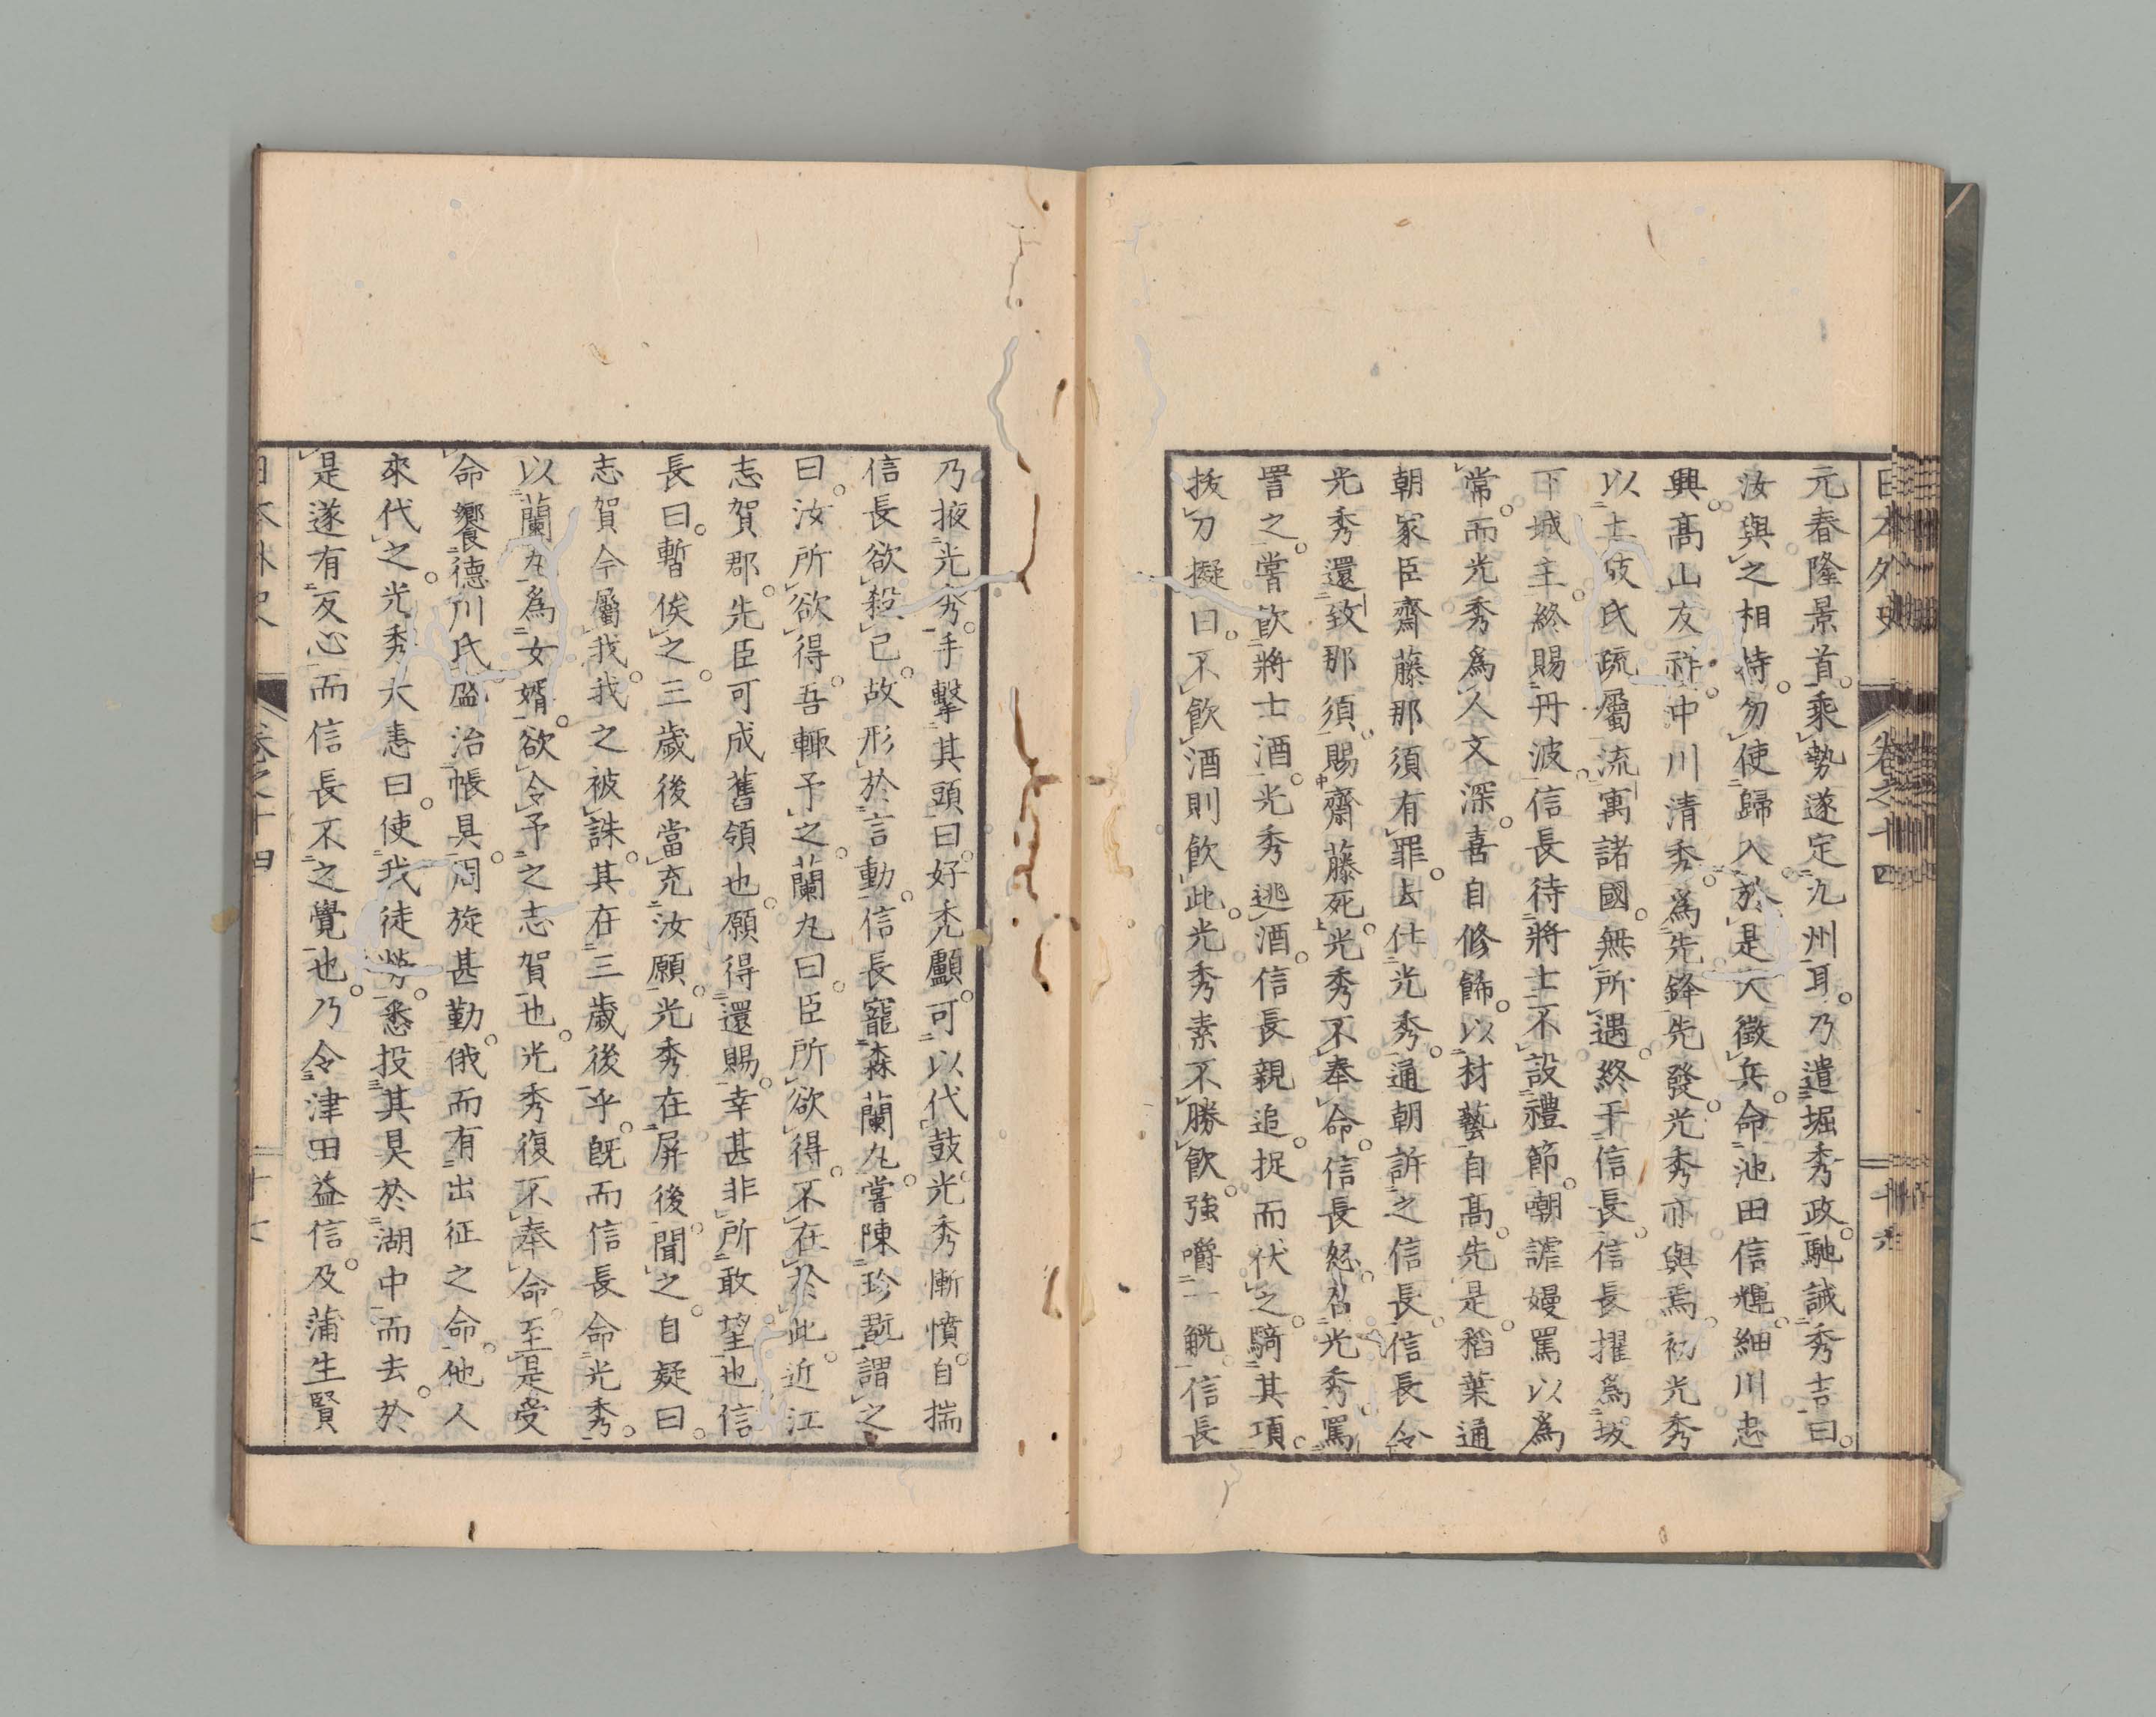 日本外史
卷之十四
元春隆景首乘勢遂定九州耳。乃遣堀秀政馳誡秀吉曰。
汝與之相持。勿使歸入。於是大徵兵。命池田信輝。細川忠
興。髙山友祥。中川清秀。爲先鋒。先發。光秀亦與焉。初光秀
以土岐氏疏屬流寓諸國。無所遇。終干信長。信長擢爲坂
下城主。終賜丹波。信長待將士不設禮節。嘲謔嫚罵以爲
常。而光秀爲人文深。喜自修飾。以材藝自髙。先是稻葉通
朝家臣齋藤那須有罪。去仕光秀。通朝訴之信長。信長令
光秀還致那須。賜齋藤死。光秀不奉命。信長怒。召光秀罵
詈之。嘗飲將士酒。光秀逃酒。信長親追。捉而伏之。騎其項。
拔刀擬曰。不飲酒則飲此。光秀素不勝飲。強嚼一觥。信長
乃掖光秀。手擊其頭曰。好禿顱。可以代鼓。光秀慚憤。自揣
信長欲殺己。故形於言動。信長寵森蘭丸。嘗陳珍翫謂之
曰。汝所欲得。吾輙予之。蘭丸曰。臣所欲得。不在於此。近江
志賀郡。先臣可成舊領也。願得還賜。幸甚。非所敢望也。信
長曰。暫俟之。三歲後當充汝願。光秀在屏後聞之。自疑曰。
志賀今屬我。我之被誅。其在三歲後乎。旣而信長命光秀。
以蘭丸爲女婿。欲令予之志賀也。光秀復不奉命。至是受
命饗德川氏。盛治帳具。周旋甚勤。俄而有出征之命。他人
來代之。光秀大恚曰。使我徒勞。悉投其具於湖中而去。於
是遂有反心。而信長不之覺也。乃令津田益信。及蒲生賢
卷之十四